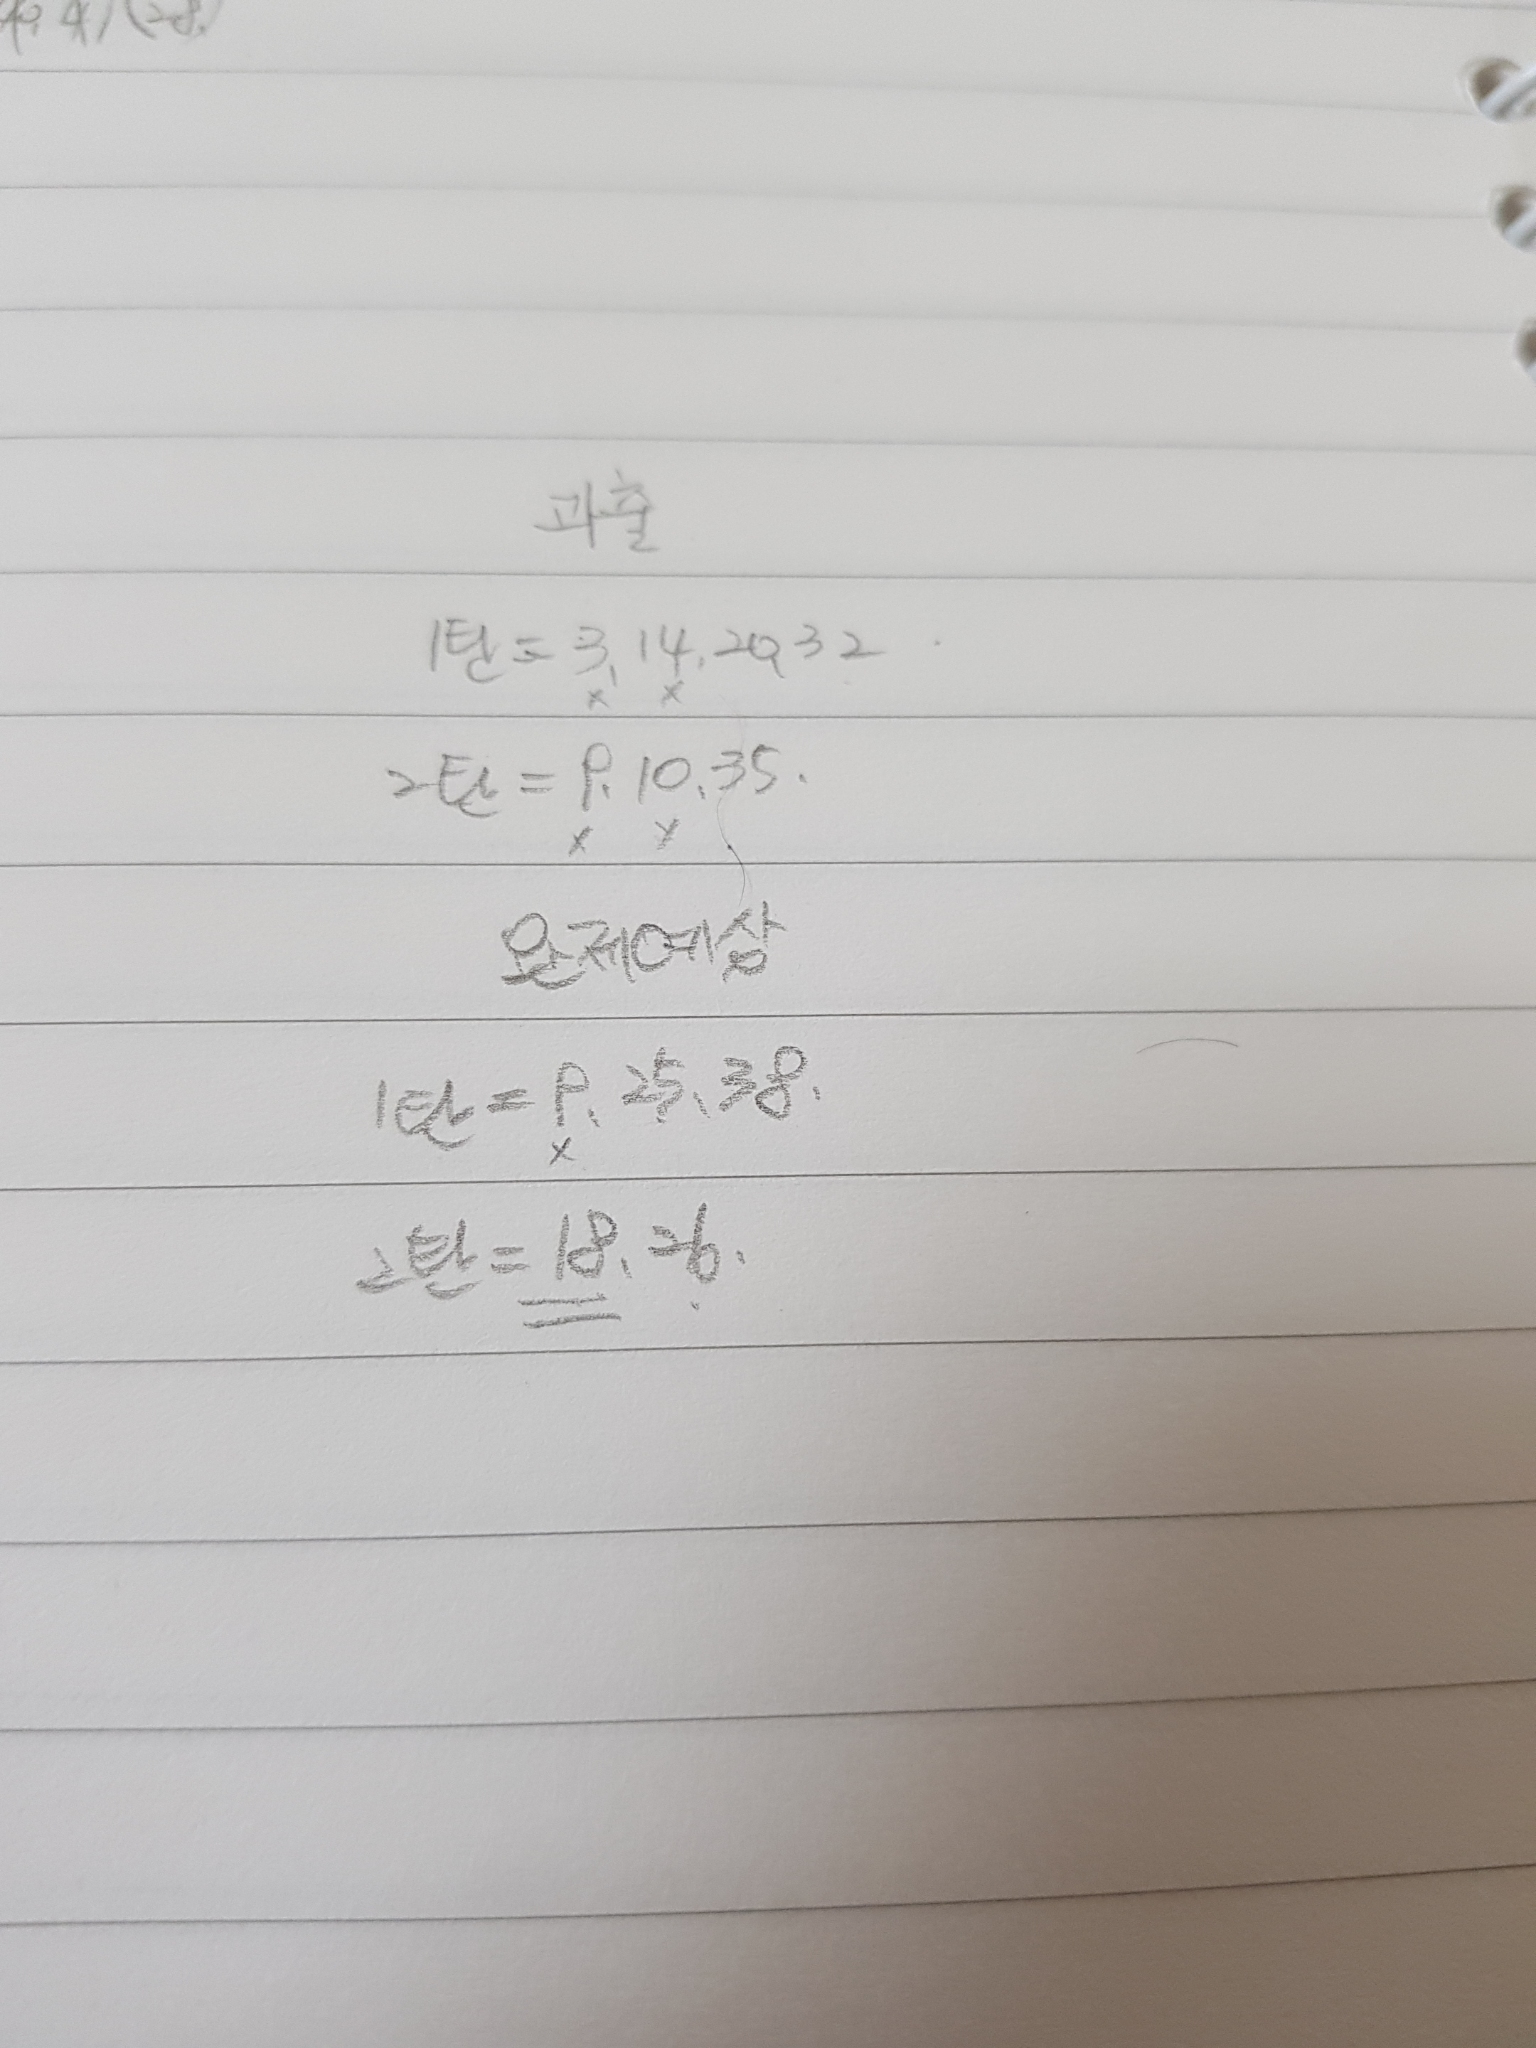 과출
1탄 = 3, 14, 20, 32
x x
2탄 = 9, 10, 35.
x x
완제예상
1탄 = 9, 25, 38,
x
2탄 = 18, 26.